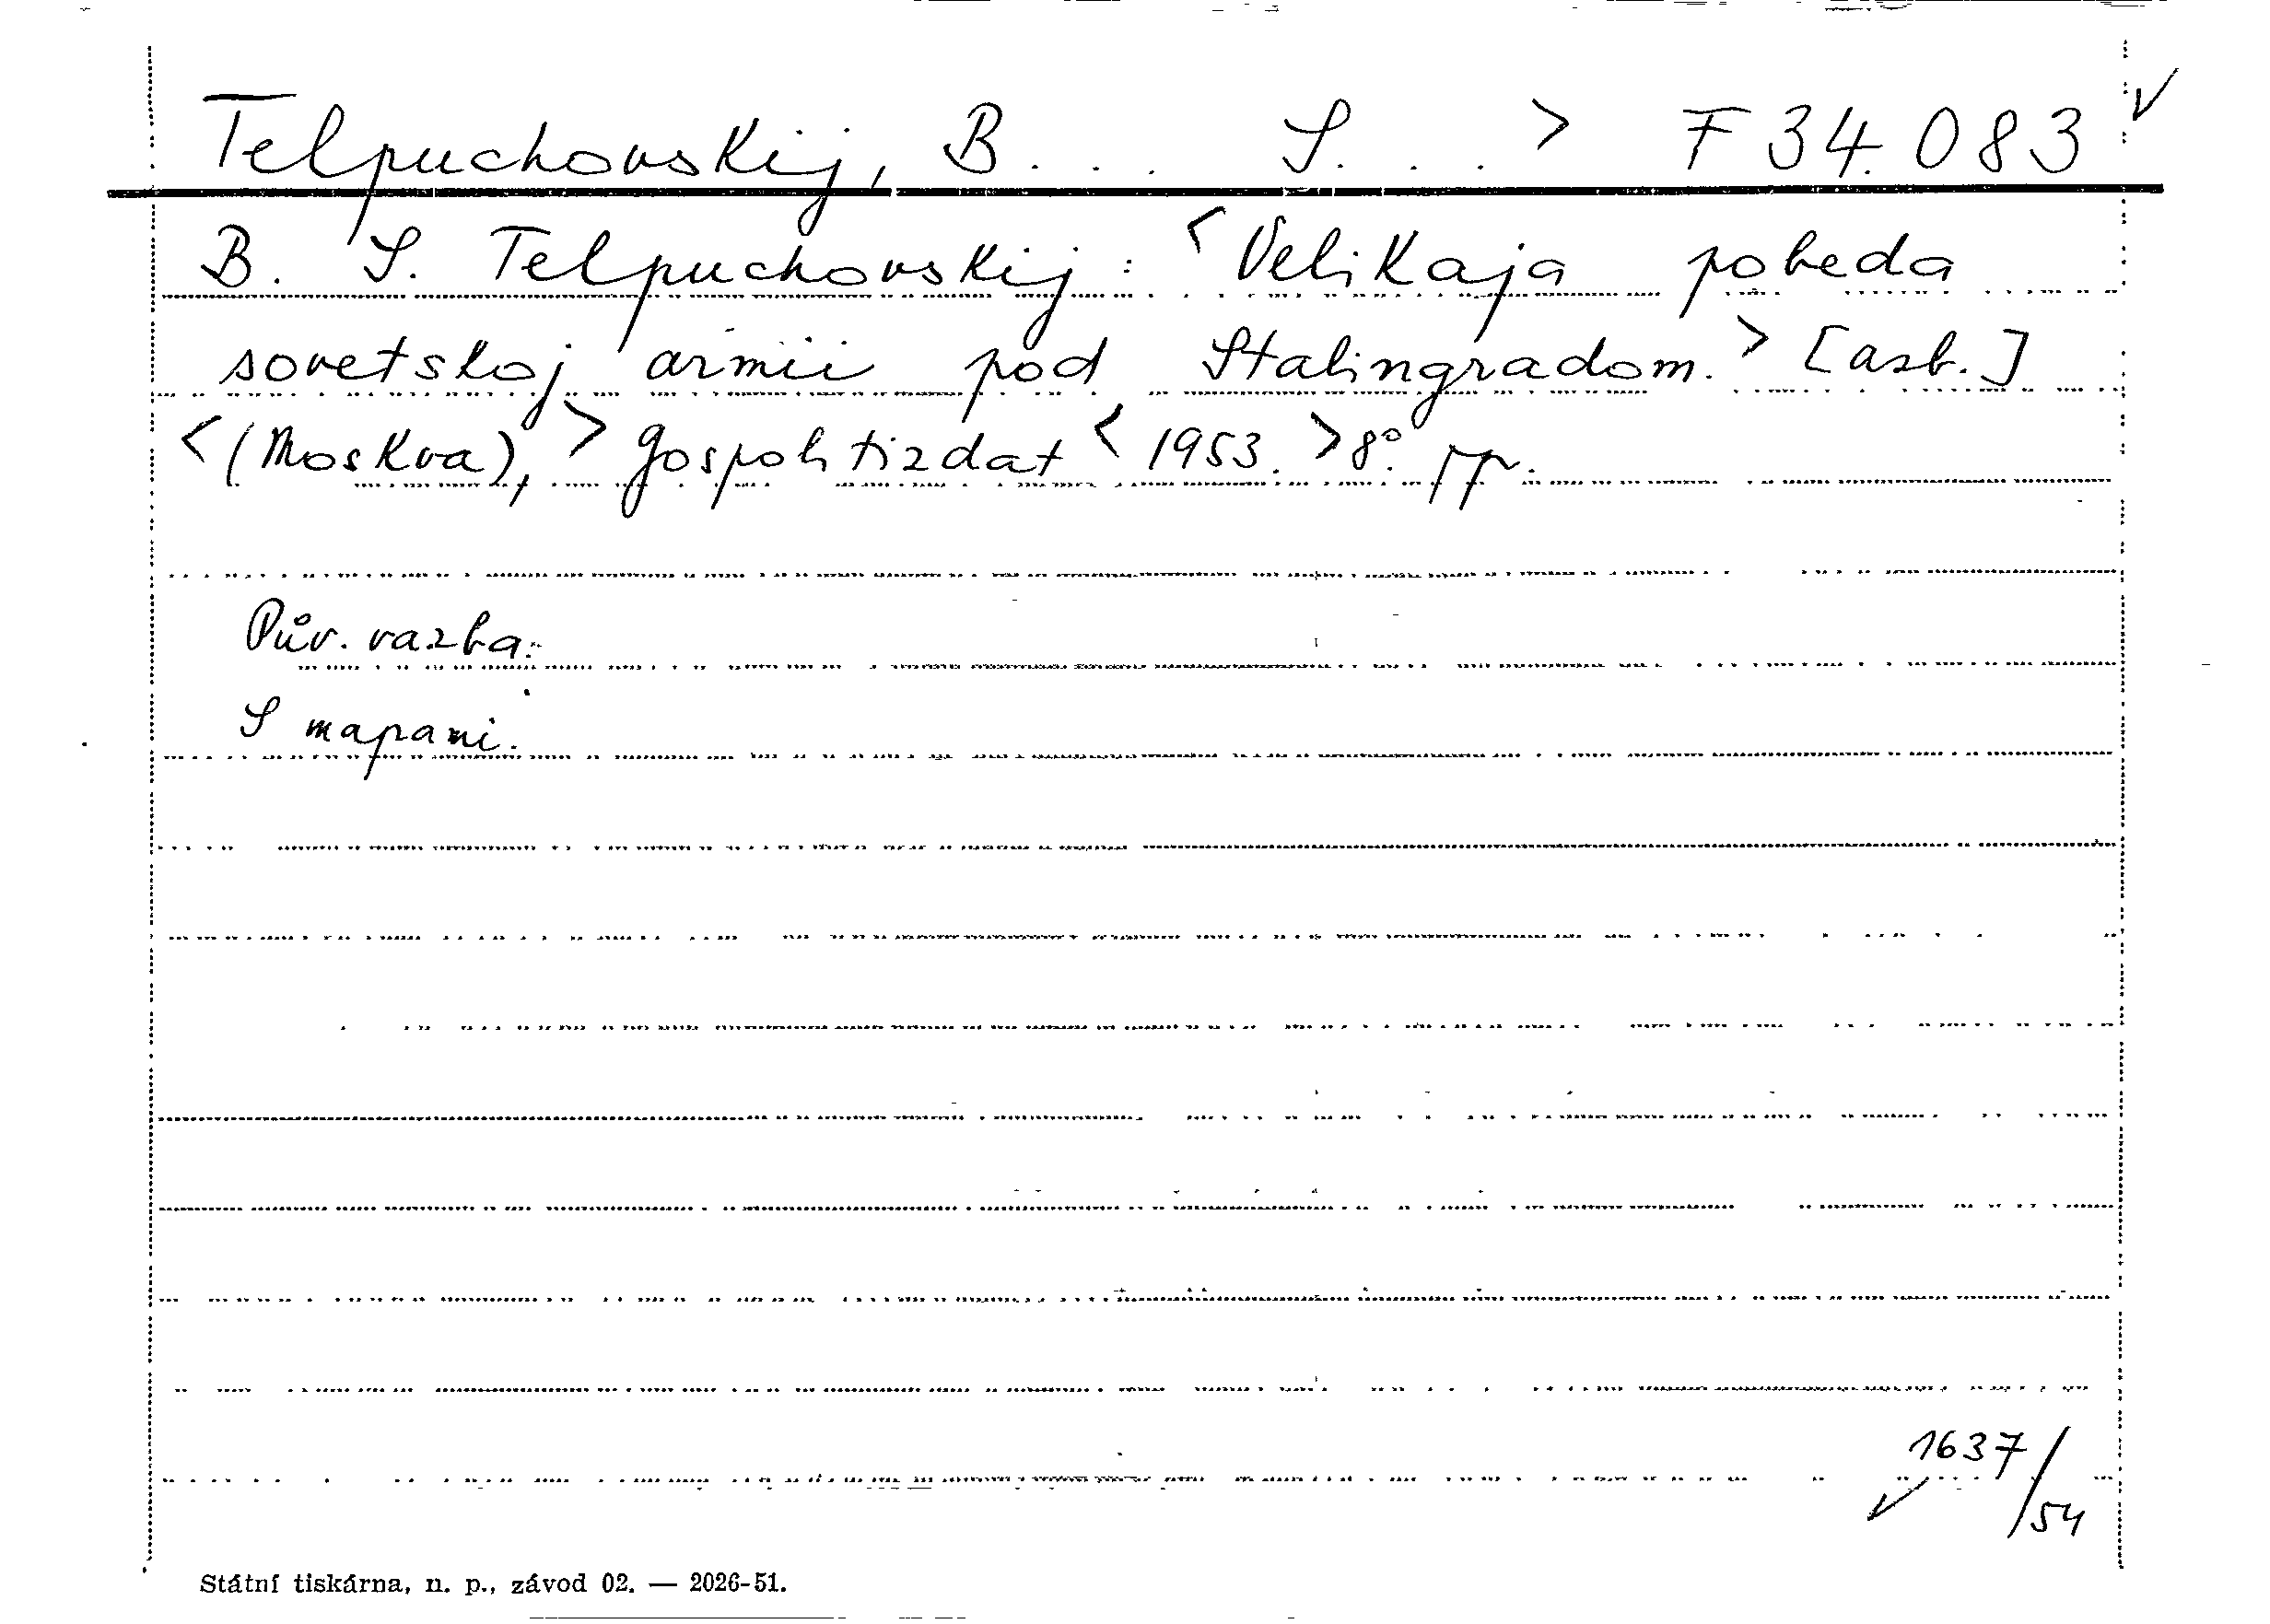 Telpuchovskij, B... S...> F 34.083 ✓
B. S. Telpuchovskij: <Velikaja pobeda
sovetskoj armii pod Stalingradom.> [azb.]
<(Moskva),> Gospolitizdat <1953.> 8°. pp.
Pův. vazba.
S mapami.
1637/54 ✓
Státní tiskárna, n. p., závod 02. — 2026-51.